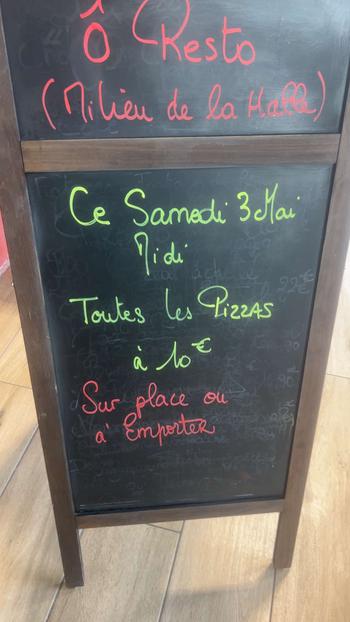 Ô Resto
(Milieu de la Halle)
Ce Samedi 3 Mai
Midi
Toutes les PIZZAS
à 10€
Sur place ou
à Emporter